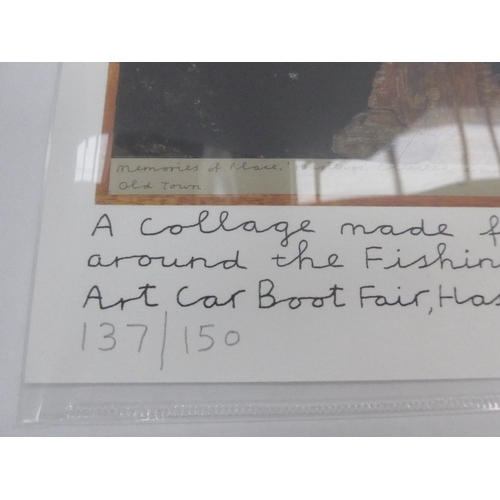 Memories of Place.'
Old Town
A collage made f
around the Fishin
Art Car Boot Fair, Has
137/150